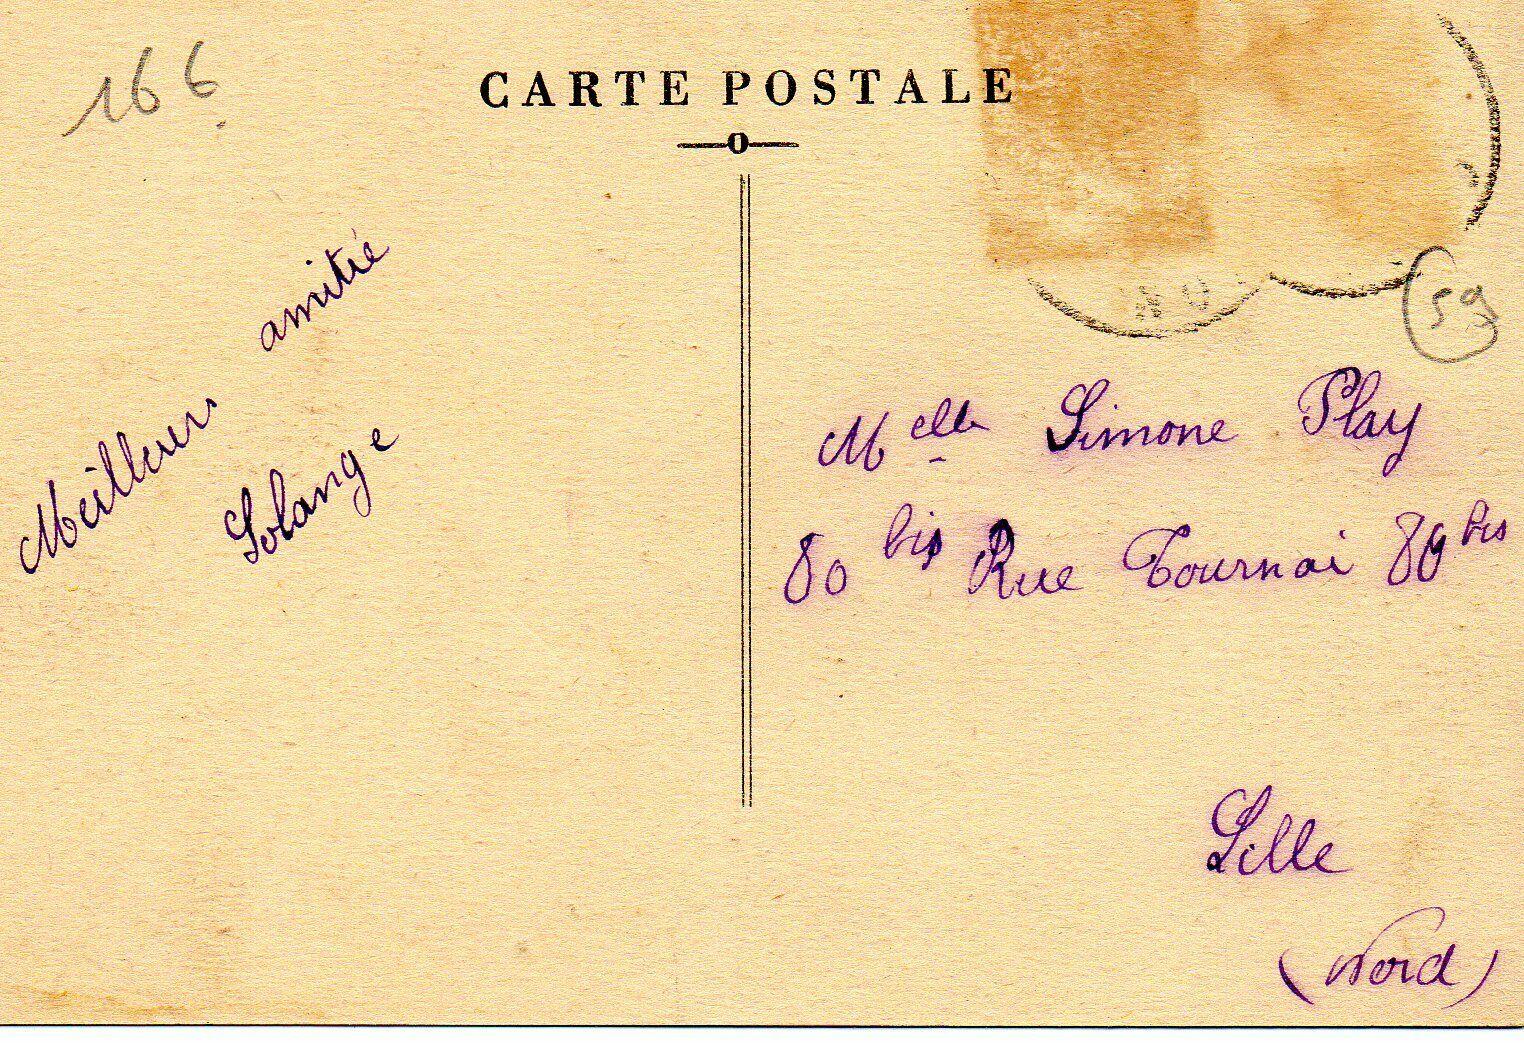 166
CARTE POSTALE
59
Meilleurs amitié
Solange
Melle Simone Play
80 bis Rue Tournai 89 bis
Lille
(Nord)